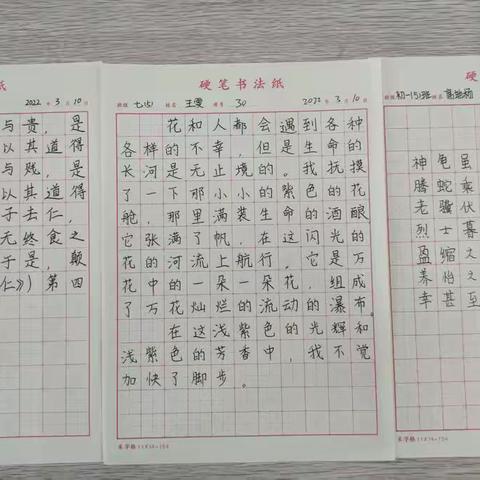 纸
2022年3月10日
与贵，是
以其道得
与贱，是
以其道得
子去仁，
无终食之
于是，颠
仁》）第四
硬笔书法纸
班级 七(5) 姓名 王雯 座号 30 2022年3月10日
花和人都会遇到各种
各样的不幸，但是生命的
长河是无止境的。我抚摸
了一下那小小的紫色的花
舱，那里满装生命的酒酿
它张满了帆，在这闪光的
花的河流上航行。它是万
花中的一朵一朵花，组成
了万花灿烂的流动的瀑布。
在这浅紫色的光辉和
浅紫色的芳香中，我不觉
加快了脚步。
米字格
硬
班级 初一(5)班 姓名
神龟虽
腾蛇乘
老骥伏
烈士暮
盈缩之
养怡之
幸甚至
米字格